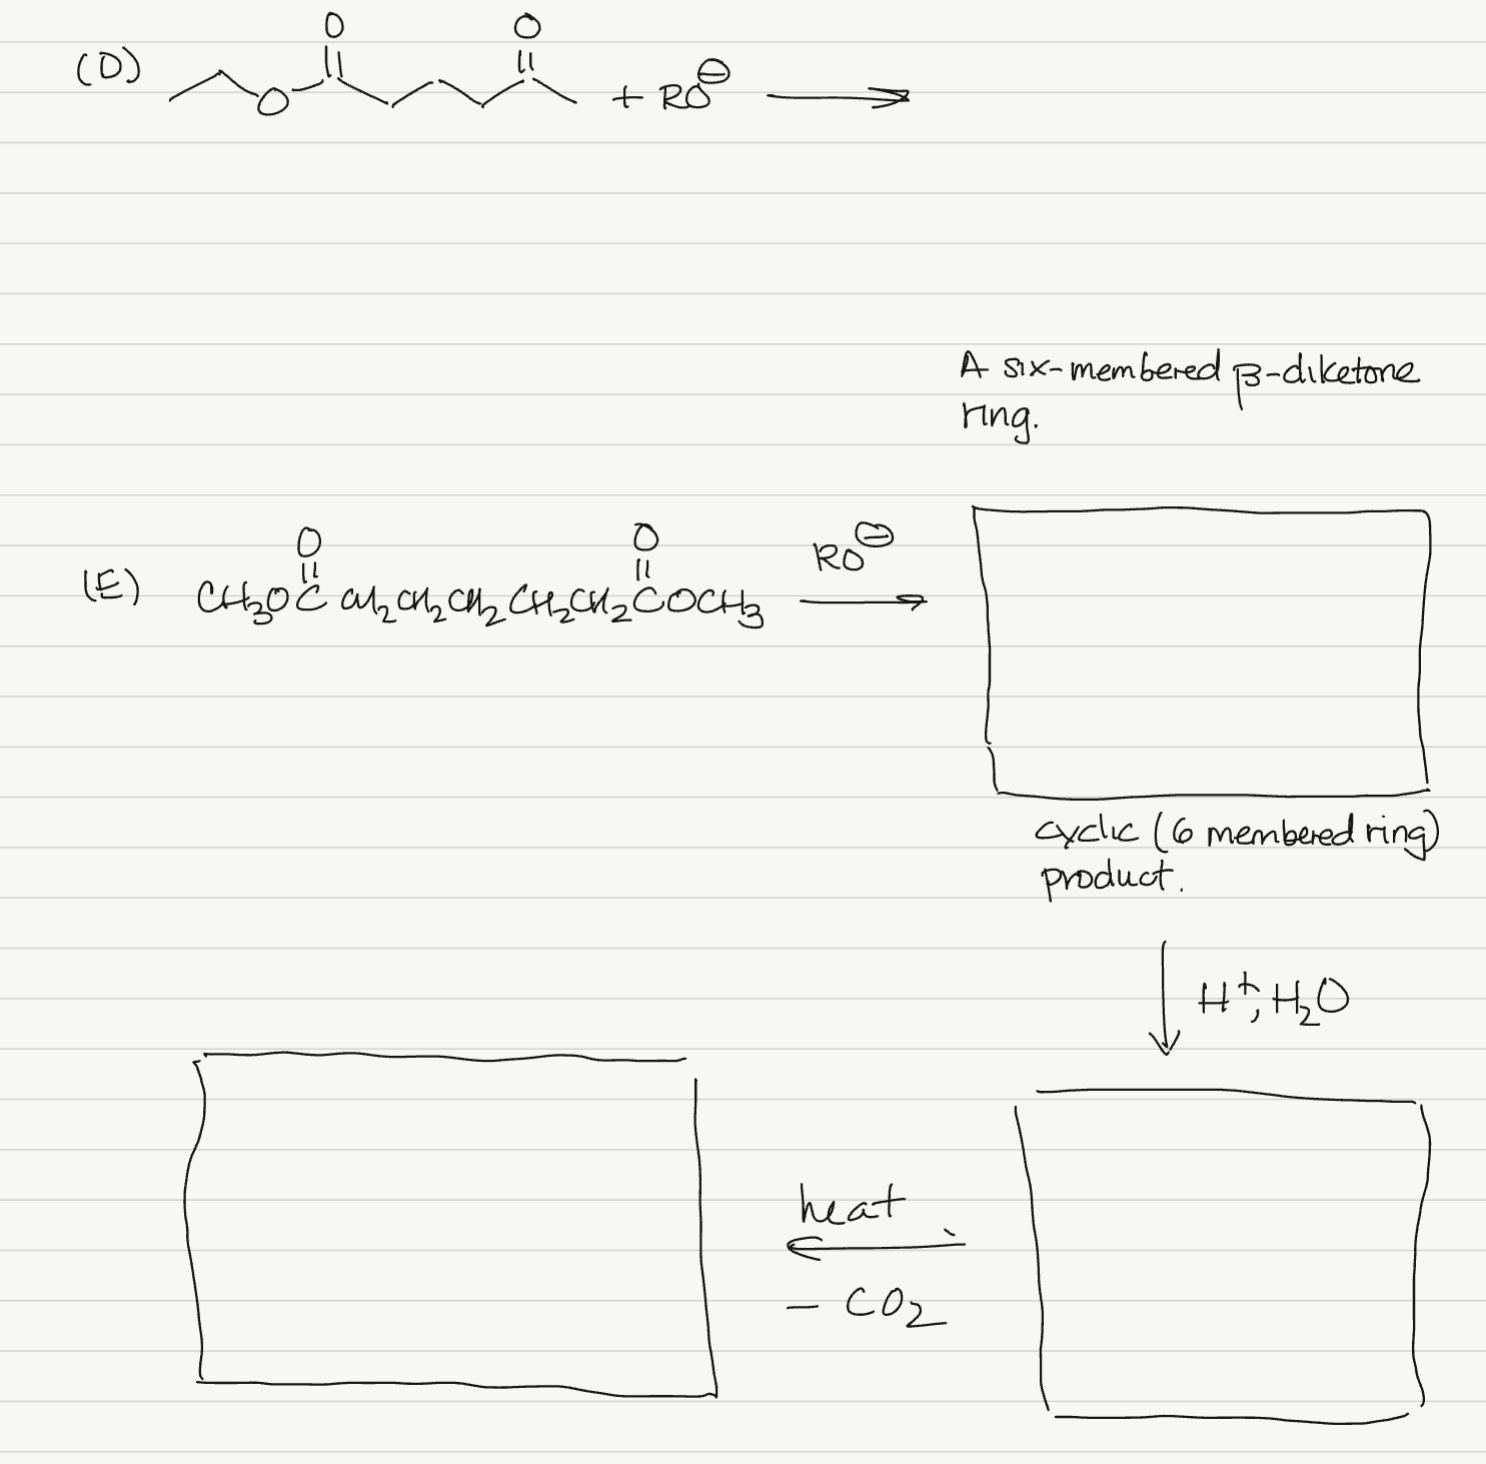 (D) O O
O + RO⊖
A six-membered β-diketone
ring.
O O
(E) CH3OC CH2CH2CH2CH2CH2COCH3 RO⊖
cyclic (6 membered ring)
product.
H+, H2O
heat
- CO2